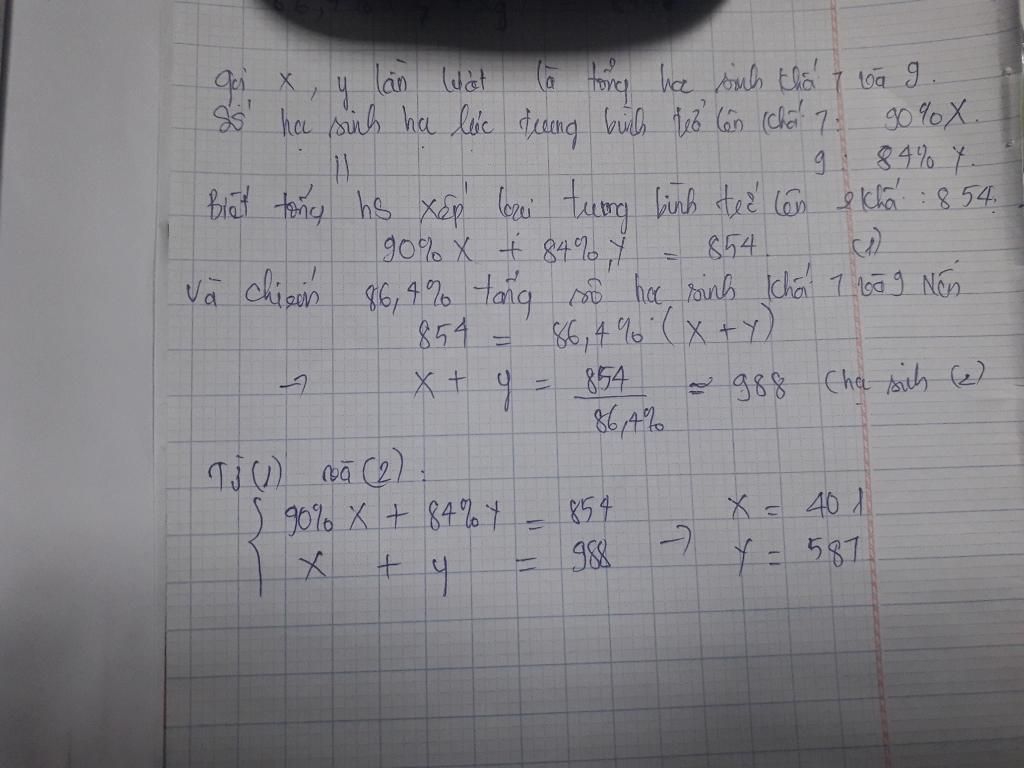 gọi x, y lần lượt là tổng học sinh khối 7 và 9.
Số học sinh học lực trung bình trở lên khối 7: 90% X.
11 9: 84% Y.
Biết tổng hs xếp loại trung bình trở lên 2 khối: 854.
90% X + 84% Y = 854 (1)
Và chiếm 86,4% tổng số học sinh khối 7 và 9 Nên
854 = 86,4% (X + Y)
→ X + y = 854 / 86,4% ≈ 988 (học sinh (2)
Từ (1) và (2):
90% X + 84% Y = 854 → X = 401
X + y = 988 Y = 587